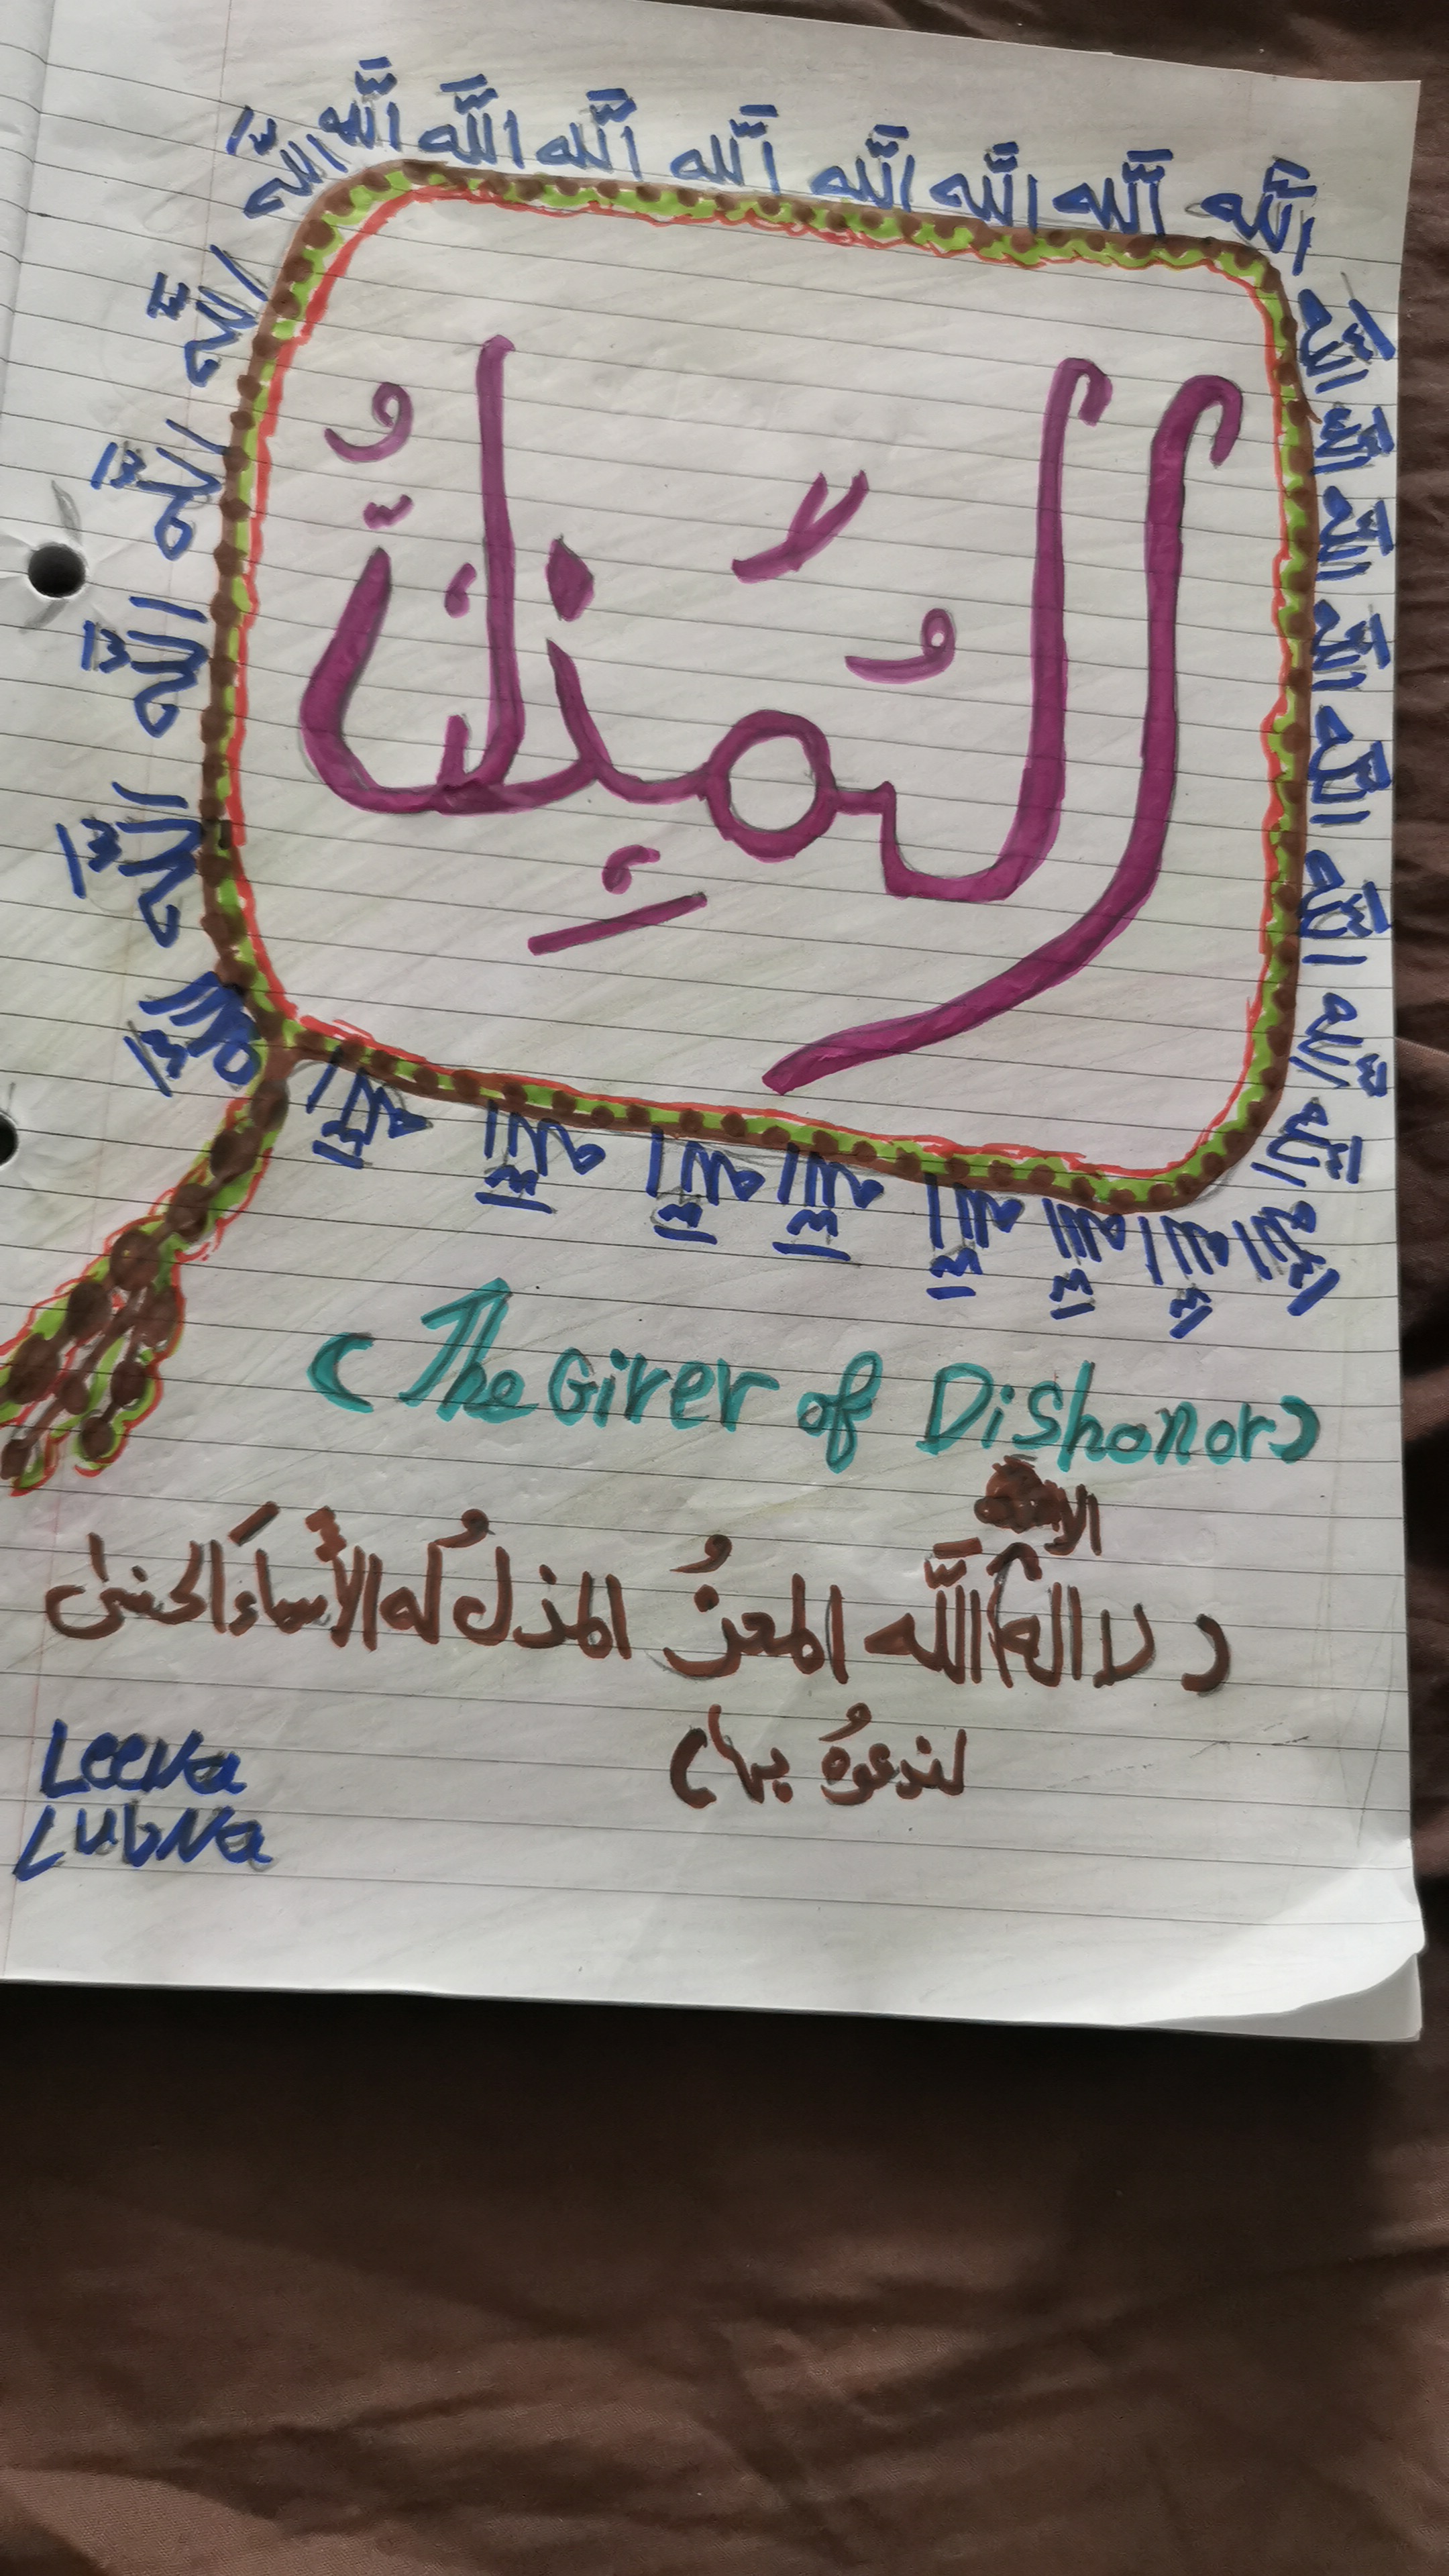 الله الله الله الله الله الله الله الله الله
الله الله الله الله الله الله الله الله
الله الله الله الله الله الله الله الله
الله الله الله الله الله
المُذِلُّ
(The Giver of Dishonor)
الا
( لا اله الله المعزُ المذل لهُ الأسماءَ الحسنىٰ
لندعوهُ بها )
Leena
Lubna